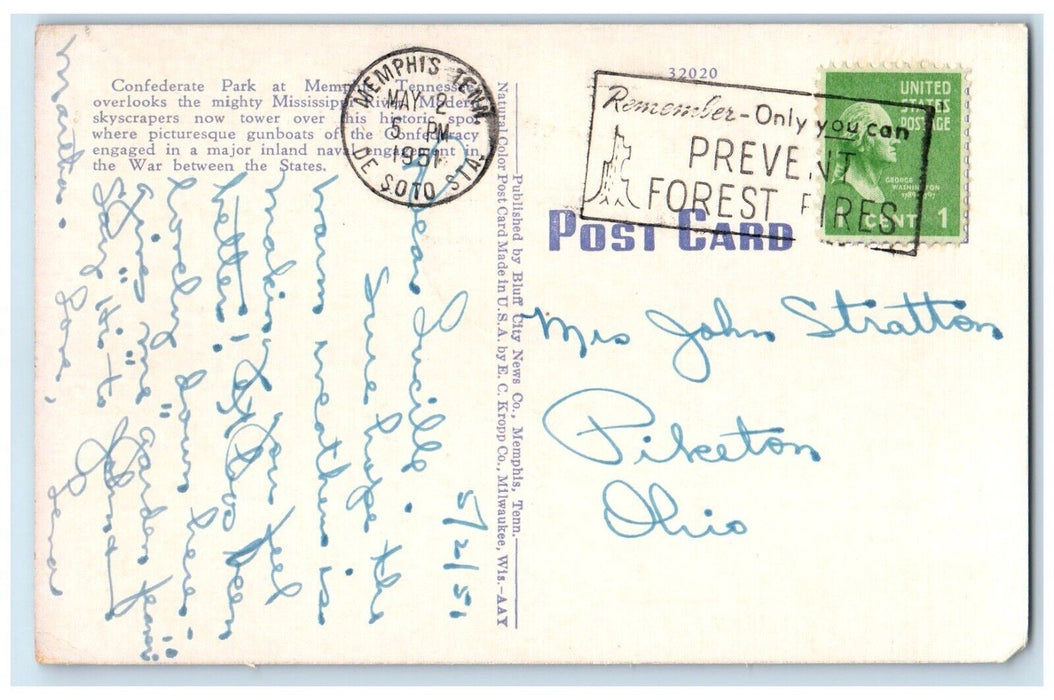 Confederate Park at Memphis, Tennessee,
overlooks the mighty Mississippi River. Modern
skyscrapers now tower over this historic spot
where picturesque gunboats of the Confederacy
engaged in a major inland naval engagement in
the War between the States.
MEMPHIS, TENN.
MAY 2
5 PM
1951
DE SOTO STA.
32020
Remember - Only you can
PREVENT
FOREST FIRES
UNITED
STATES
POSTAGE
GEORGE
WASHINGTON
1789-1797
CENT 1
POST CARD
Published by Bluff City News Co., Memphis, Tenn.
Natural Color Post Card Made in U.S.A. by E. C. Kropp Co., Milwaukee, Wis.—AAY
Mrs John Stratton
Piketon
Ohio
5/2/51
Dear Lucille.
Sure hope the
warm weather is
making you feel
better! Have been
lucky down here
in "garden
Say "Hi" to John
Love,